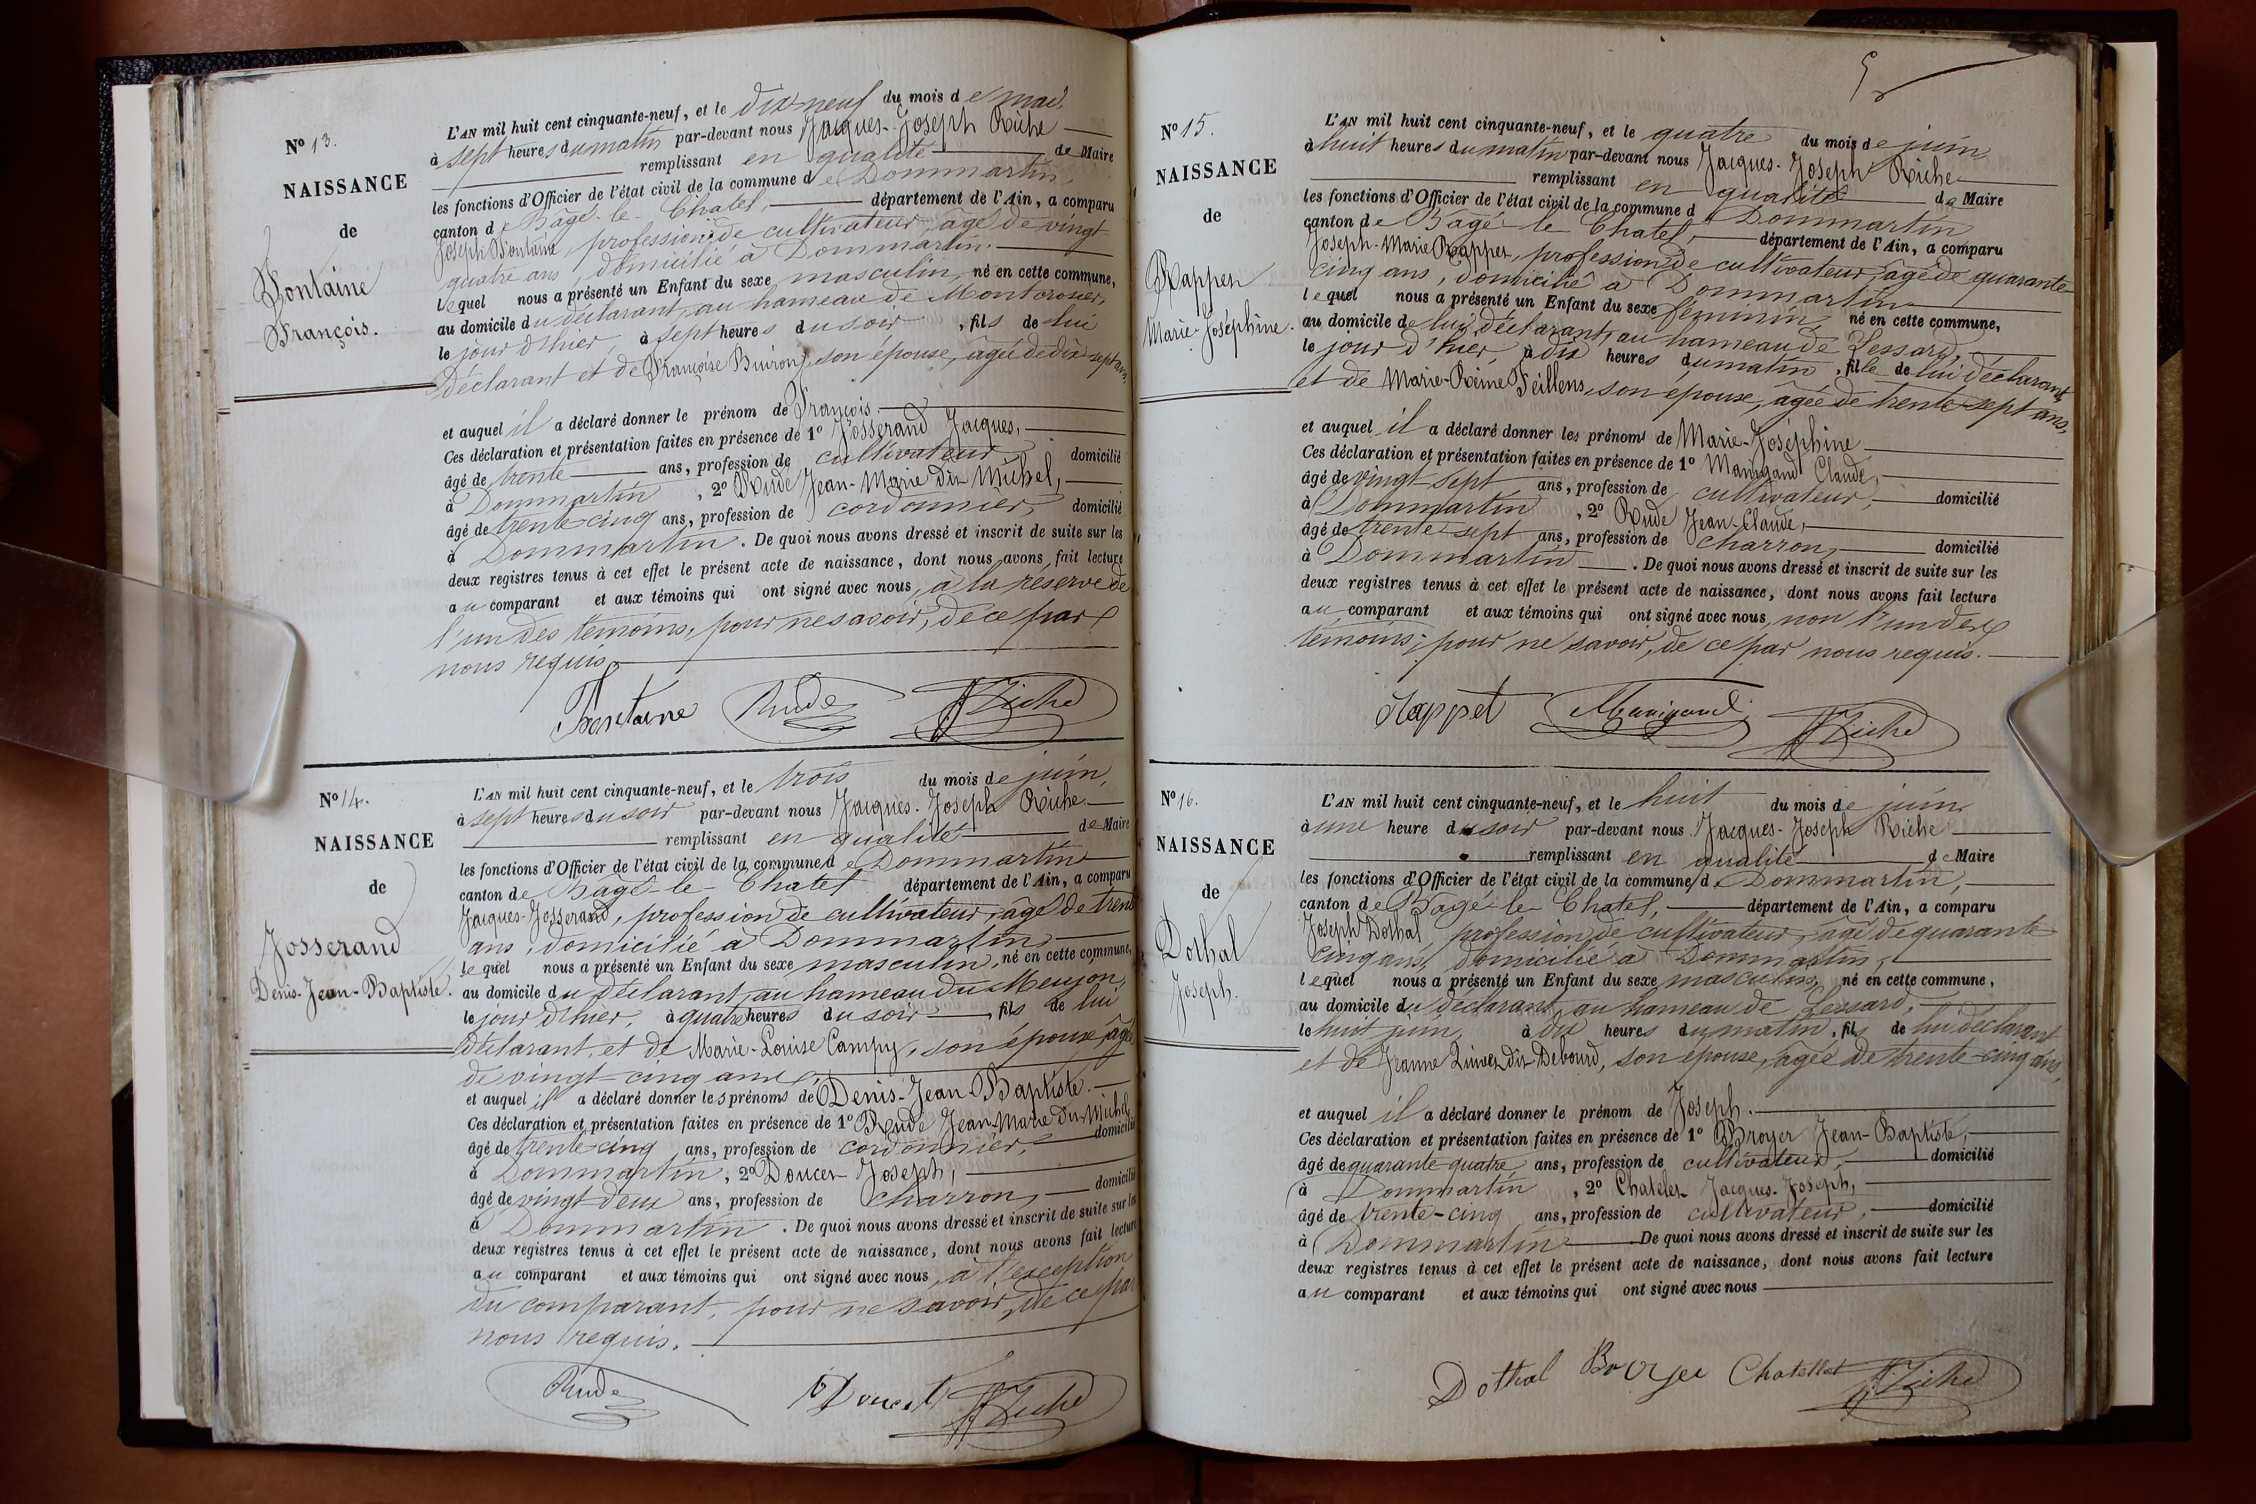 N° 13.
NAISSANCE
de
Fontaine
François.
L'AN mil huit cent cinquante-neuf, et le dix neuf du mois de mai,
à sept heures du matin par-devant nous Jacques-Joseph Riche
remplissant en qualité de Maire
les fonctions d'Officier de l'état civil de la commune de Dommartin,
canton de Bâgé-le-Chatel, département de l'Ain, a comparu
Joseph Fontaine, profession de cultivateur, âgé de vingt
quatre ans, domicilié à Dommartin.
lequel nous a présenté un Enfant du sexe masculin, né en cette commune,
au domicile du déclarant, au hameau de Montcrosier,
le jour d'hier, à sept heures du soir, fils de lui
déclarant et de Françoise Buiron, son épouse, âgée de dix sept ans,
et auquel il a déclaré donner le prénom de François.
Ces déclaration et présentation faites en présence de 1° Josserand Jacques,
âgé de trente ans, profession de cultivateur domicilié
à Dommartin, 2° Rude Jean-Marie dit Michel,
âgé de trente-cinq ans, profession de cordonnier, domicilié
à Dommartin. De quoi nous avons dressé et inscrit de suite sur les
deux registres tenus à cet effet le présent acte de naissance, dont nous avons fait lecture
au comparant et aux témoins qui ont signé avec nous, à la réserve de
l'un des témoins, pour ne savoir, de ce par
nous requis.
Fontaine Rude JJ Riche
N° 14.
NAISSANCE
de
Josserand
Denis-Jean-Baptiste.
L'AN mil huit cent cinquante-neuf, et le trois du mois de juin,
à sept heures du soir par-devant nous Jacques-Joseph Riche
remplissant en qualité de Maire
les fonctions d'Officier de l'état civil de la commune de Dommartin
canton de Bâgé-le-Chatel département de l'Ain, a comparu
Jacques Josserand, profession de cultivateur, âgé de trente
ans, domicilié à Dommartin,
lequel nous a présenté un Enfant du sexe masculin, né en cette commune,
au domicile du déclarant, au hameau du Meujon,
le jour d'hier, à quatre heures du soir, fils de lui
déclarant, et de Marie-Louise Campy, son épouse, âgée
de vingt-cinq ans,
et auquel il a déclaré donner les prénoms de Denis-Jean-Baptiste.
Ces déclaration et présentation faites en présence de 1° Rude Jean Marie dit Michel
âgé de trente-cinq ans, profession de cordonnier, domicilié
à Dommartin, 2° Doucet Joseph,
âgé de vingt deux ans, profession de charron, domicilié
à Dommartin. De quoi nous avons dressé et inscrit de suite sur les
deux registres tenus à cet effet le présent acte de naissance, dont nous avons fait lecture
au comparant et aux témoins qui ont signé avec nous, à l'exception
du comparant, pour ne savoir, de ce par
nous requis.
Rude Doucet JJ Riche
N° 15.
NAISSANCE
de
Rappet
Marie-Joséphine.
L'AN mil huit cent cinquante-neuf, et le quatre du mois de juin,
à huit heures du matin par-devant nous Jacques-Joseph Riche
remplissant en qualité de Maire
les fonctions d'Officier de l'état civil de la commune d Dommartin
canton de Bâgé-le-Chatel, département de l'Ain, a comparu
Joseph-Marie Rappet, profession de cultivateur, âgé de quarante
cinq ans, domicilié à Dommartin
lequel nous a présenté un Enfant du sexe féminin, né en cette commune,
au domicile de lui, déclarant, au hameau de Lessard,
le jour d'hier, à dix heures du matin, fille de lui déclarant
et de Marie-Reine Feillens, son épouse, âgée de trente-sept ans,
et auquel il a déclaré donner les prénoms de Marie-Joséphine
Ces déclaration et présentation faites en présence de 1° Manigand Claude,
âgé de vingt sept ans, profession de cultivateur, domicilié
à Dommartin, 2° Rude Jean-Claude,
âgé de trente sept ans, profession de charron, domicilié
à Dommartin. De quoi nous avons dressé et inscrit de suite sur les
deux registres tenus à cet effet le présent acte de naissance, dont nous avons fait lecture
au comparant et aux témoins qui ont signé avec nous, non l'un des
témoins, pour ne savoir, de ce par nous requis.
Rappet Manigand JJ Riche
N° 16.
NAISSANCE
de
Dothal
Joseph.
L'AN mil huit cent cinquante-neuf, et le huit du mois de juin,
à une heure du soir par-devant nous Jacques-Joseph Riche
remplissant en qualité de Maire
les fonctions d'Officier de l'état civil de la commune de Dommartin,
canton de Bâgé-le-Chatel, département de l'Ain, a comparu
Joseph Dothal, profession de cultivateur, âgé de quarante
cinq ans, domicilié à Dommartin,
lequel nous a présenté un Enfant du sexe masculin, né en cette commune,
au domicile du déclarant, au hameau de Lessard,
le huit juin, à dix heures du matin, fils de lui déclarant
et de Jeanne dit Debourd, son épouse, âgée de trente-cinq ans,
et auquel il a déclaré donner le prénom de Joseph.
Ces déclaration et présentation faites en présence de 1° Broyer Jean-Baptiste,
âgé de quarante quatre ans, profession de cultivateur, domicilié
à Dommartin, 2° Chatelet Jacques-Joseph,
âgé de trente-cinq ans, profession de cultivateur, domicilié
à Dommartin De quoi nous avons dressé et inscrit de suite sur les
deux registres tenus à cet effet le présent acte de naissance, dont nous avons fait lecture
au comparant et aux témoins qui ont signé avec nous
Dothal Broyer Chatellet JJ Riche